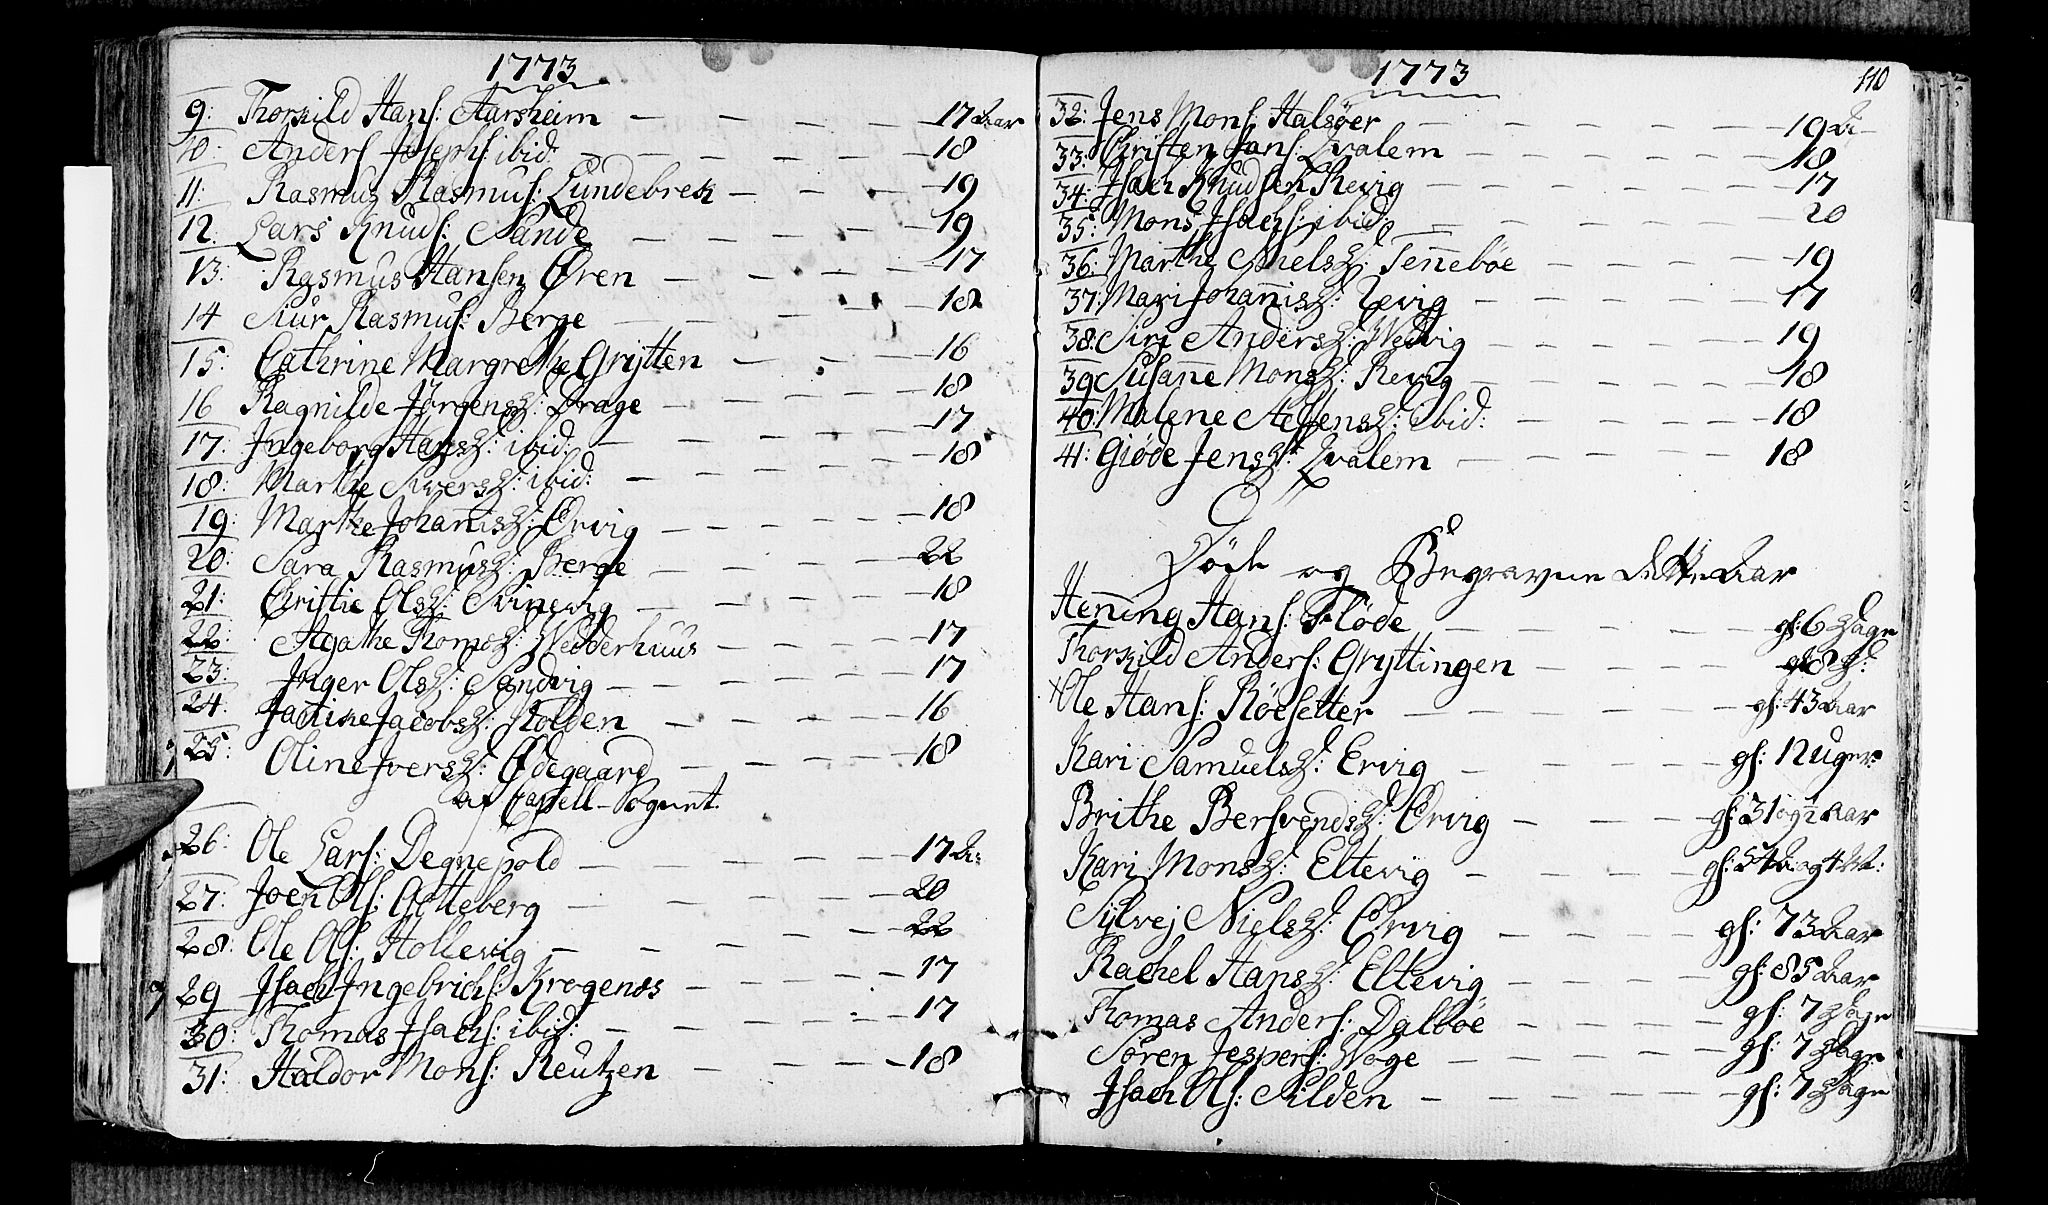 1773
9: Thorkild Hans: Aarsheim 17 Aar
10: Anders Josephs: ibid: 18
11: Rasmus Rasmus: Lundebrek 19
12. Lars Knuds: Sande 19
13: Rasmus Hansen Øren 17
14 Siur Rasmus: Berge 18
15: Cathrine Margrethe Grytten 16
16 Ragnilde Jørgensd: Drage 18
17: Ingeborg Hansd: ibid: 17
18: Marthe Siversd: ibid: 18
19: Marthe Johannisd: Ervig 18
20: Sara Rasmusd: Berge 22
21: Christie Olsd: Svinevig 18
22: Agathe Thomsd: Wedderhuus 17
23: Inger Olsd: Sandvig 17
24. Jacobsd: Stolden 16
25: Oline Iversd: Ødegaard 18
af Capell-Sognet.
26: Ole Lars: Degnepold 17 A:
27: Joen Ols: Gotteberg 20
28: Ole Ols: Hollevig 22
29 Isach Ingebrichs: Kragenæs 17
30: Thomas Isachs: ibid: 17
31: Haldor Mons: Reutzen 18
1773
110
32: Jens Mons: Halsøer 19 A
33: Christen Jans: Qvalem 18
34: Isach Knudsen Revig 17
35: Mons Isachs: ibid: 20
36: Marthe Nielsd: Tennebøe 19
37: Mari Johannisd: Revig 17
38: Siri Andersd: Wedvig 19
39: Susanne Monsd: Revig 18
40: Malene ibid: 18
41: Giøde Jensd: Qvalem 18
Døde og Begravne dette Aar
Henning Hans: Fløde gl: 6 Dage
Thorkild Anders: Gryttingen gl: 8 D:
Ole Hans: Røesetter gl: 43 Aar
Kari Samuelsd: Ervig gl: 12 Uger
Brithe Bersvendsd: Ervig gl: 31 og 1/2 Aar
Kari Monsd: Eltevig gl: 54 A: og 4 M:
Sylvej Nielsd: Ervig gl: 73 Aar
Rachel Hansd: Eltevig gl: 85 Aar
Thomas Anders: Dalbøe gl: 7 Dage
Søren Jespers: Woge gl: 7 Dage
Isach Ols: Silden gl: 7 Dage